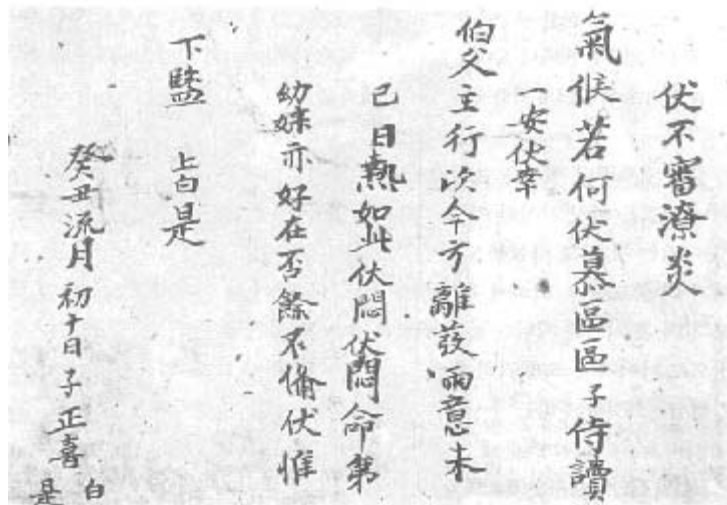 伏不審潦炎
氣候若何伏慕區區子侍讀
一安伏幸
伯父主行次今方離發雨意未
已日熱如此伏悶伏悶命弟
幼妹亦好在否餘不備伏惟
下監 上白是
癸丑流月初十日子正喜白
是